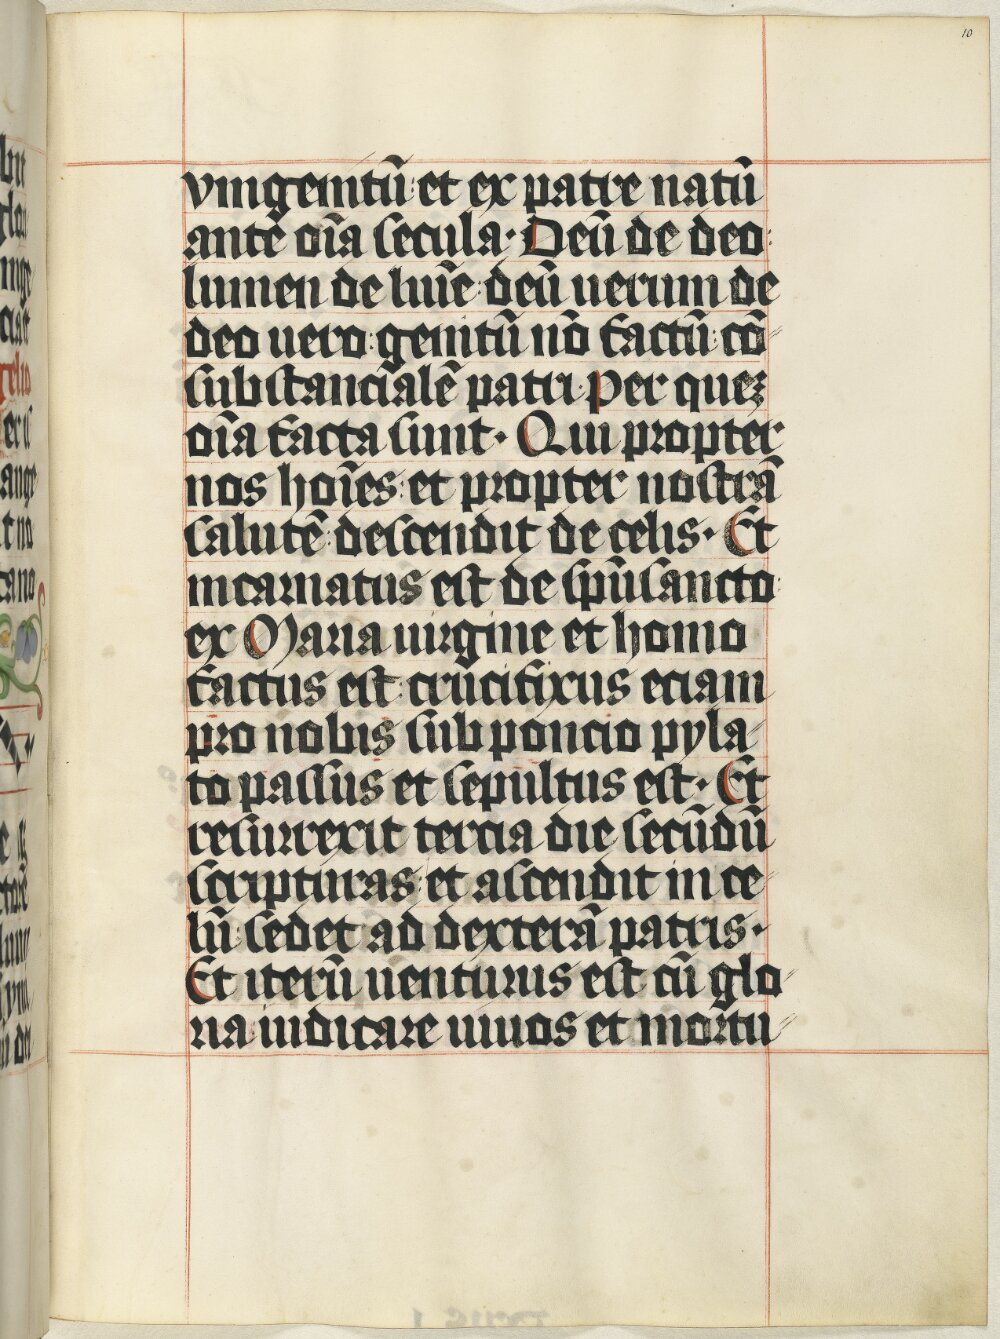 10
vnigenitū et ex patre natū
ante oīa secula· Deū de deo
lumen de luīe deū uerum de
deo uero genitū nō factū cō
substancialē patri Per quez
oīa facta sunt· Qui propter
nos hoīes et propter nostrā
salutē descendit de celis· Et
incarnatus est de spūsancto
ex Maria uirgine et homo
factus est crucifixus eciam
pro nobis sub poncio pyla
to passus et sepultus est· Et
resurrexit tercia die secūdū
scripturas et ascendit in ce
lū sedet ad dexterā patris·
Et iterū uenturus est cū glo
ria iudicare uiuos et mortu